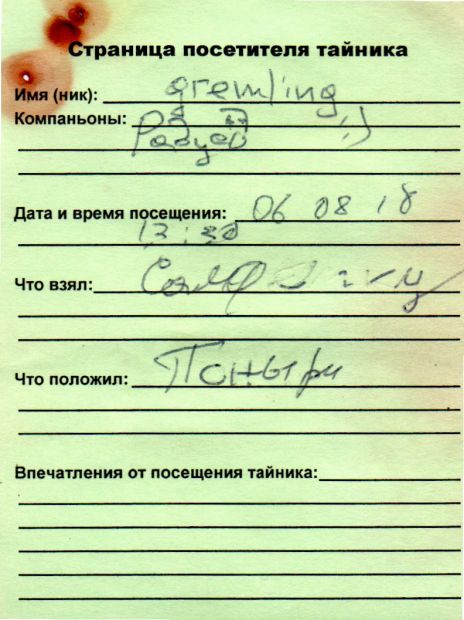 Страница посетителя тайника
Имя (ник): gremling
Компаньоны: :)
Дата и время посещения: 06 08 18
Что взял:
Что положил: Поныри
Впечатления от посещения тайника: